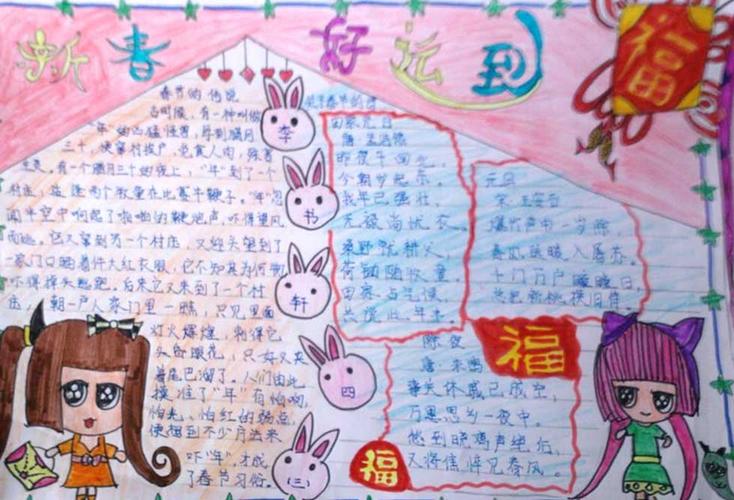 新春 好运到
福
春节的传说
古时候，有一种叫做
"年"的凶猛怪兽，每到腊月
三十，便窜村挨户，觅食人肉，残害
生灵。有一个腊月三十的晚上，"年"到了一个
村庄，适逢两个牧童在比赛牛鞭子。"年"忽
闻半空中响起了啪啪的鞭炮声，吓得望风
而逃。它又窜到另一个村庄，又迎头望到了
一家门口晒着件大红衣服，它不知其为何物
吓得掉头逃跑。后来它又来到了一个村
庄，朝一户人家门里一瞧，只见里面
灯火辉煌，刺得它
头昏眼花，只好又夹
着尾巴溜了。人们由此
摸准了"年"有怕响，
怕光、怕红的弱点，
便想到不少方法来
吓"年"，才成
了春节习俗。
李
书
轩
四
(三)
关于春节的诗
田家元日
唐 孟浩然
昨夜斗回北，
今朝岁起东。
我年已强壮，
无禄尚忧农。
桑野就耕父，
荷锄随牧童
田家占气候，
共说此年丰
元旦
宋 王安石
爆竹声中一岁除，
春风送暖入屠苏。
千门万户曈曈日，
总把新桃换旧符
除夜
唐·来鹄
事关休戚已成空，
万里思为一夜中。
愁到晓鸡声绝后，
又将憔悴见春风。
福
福